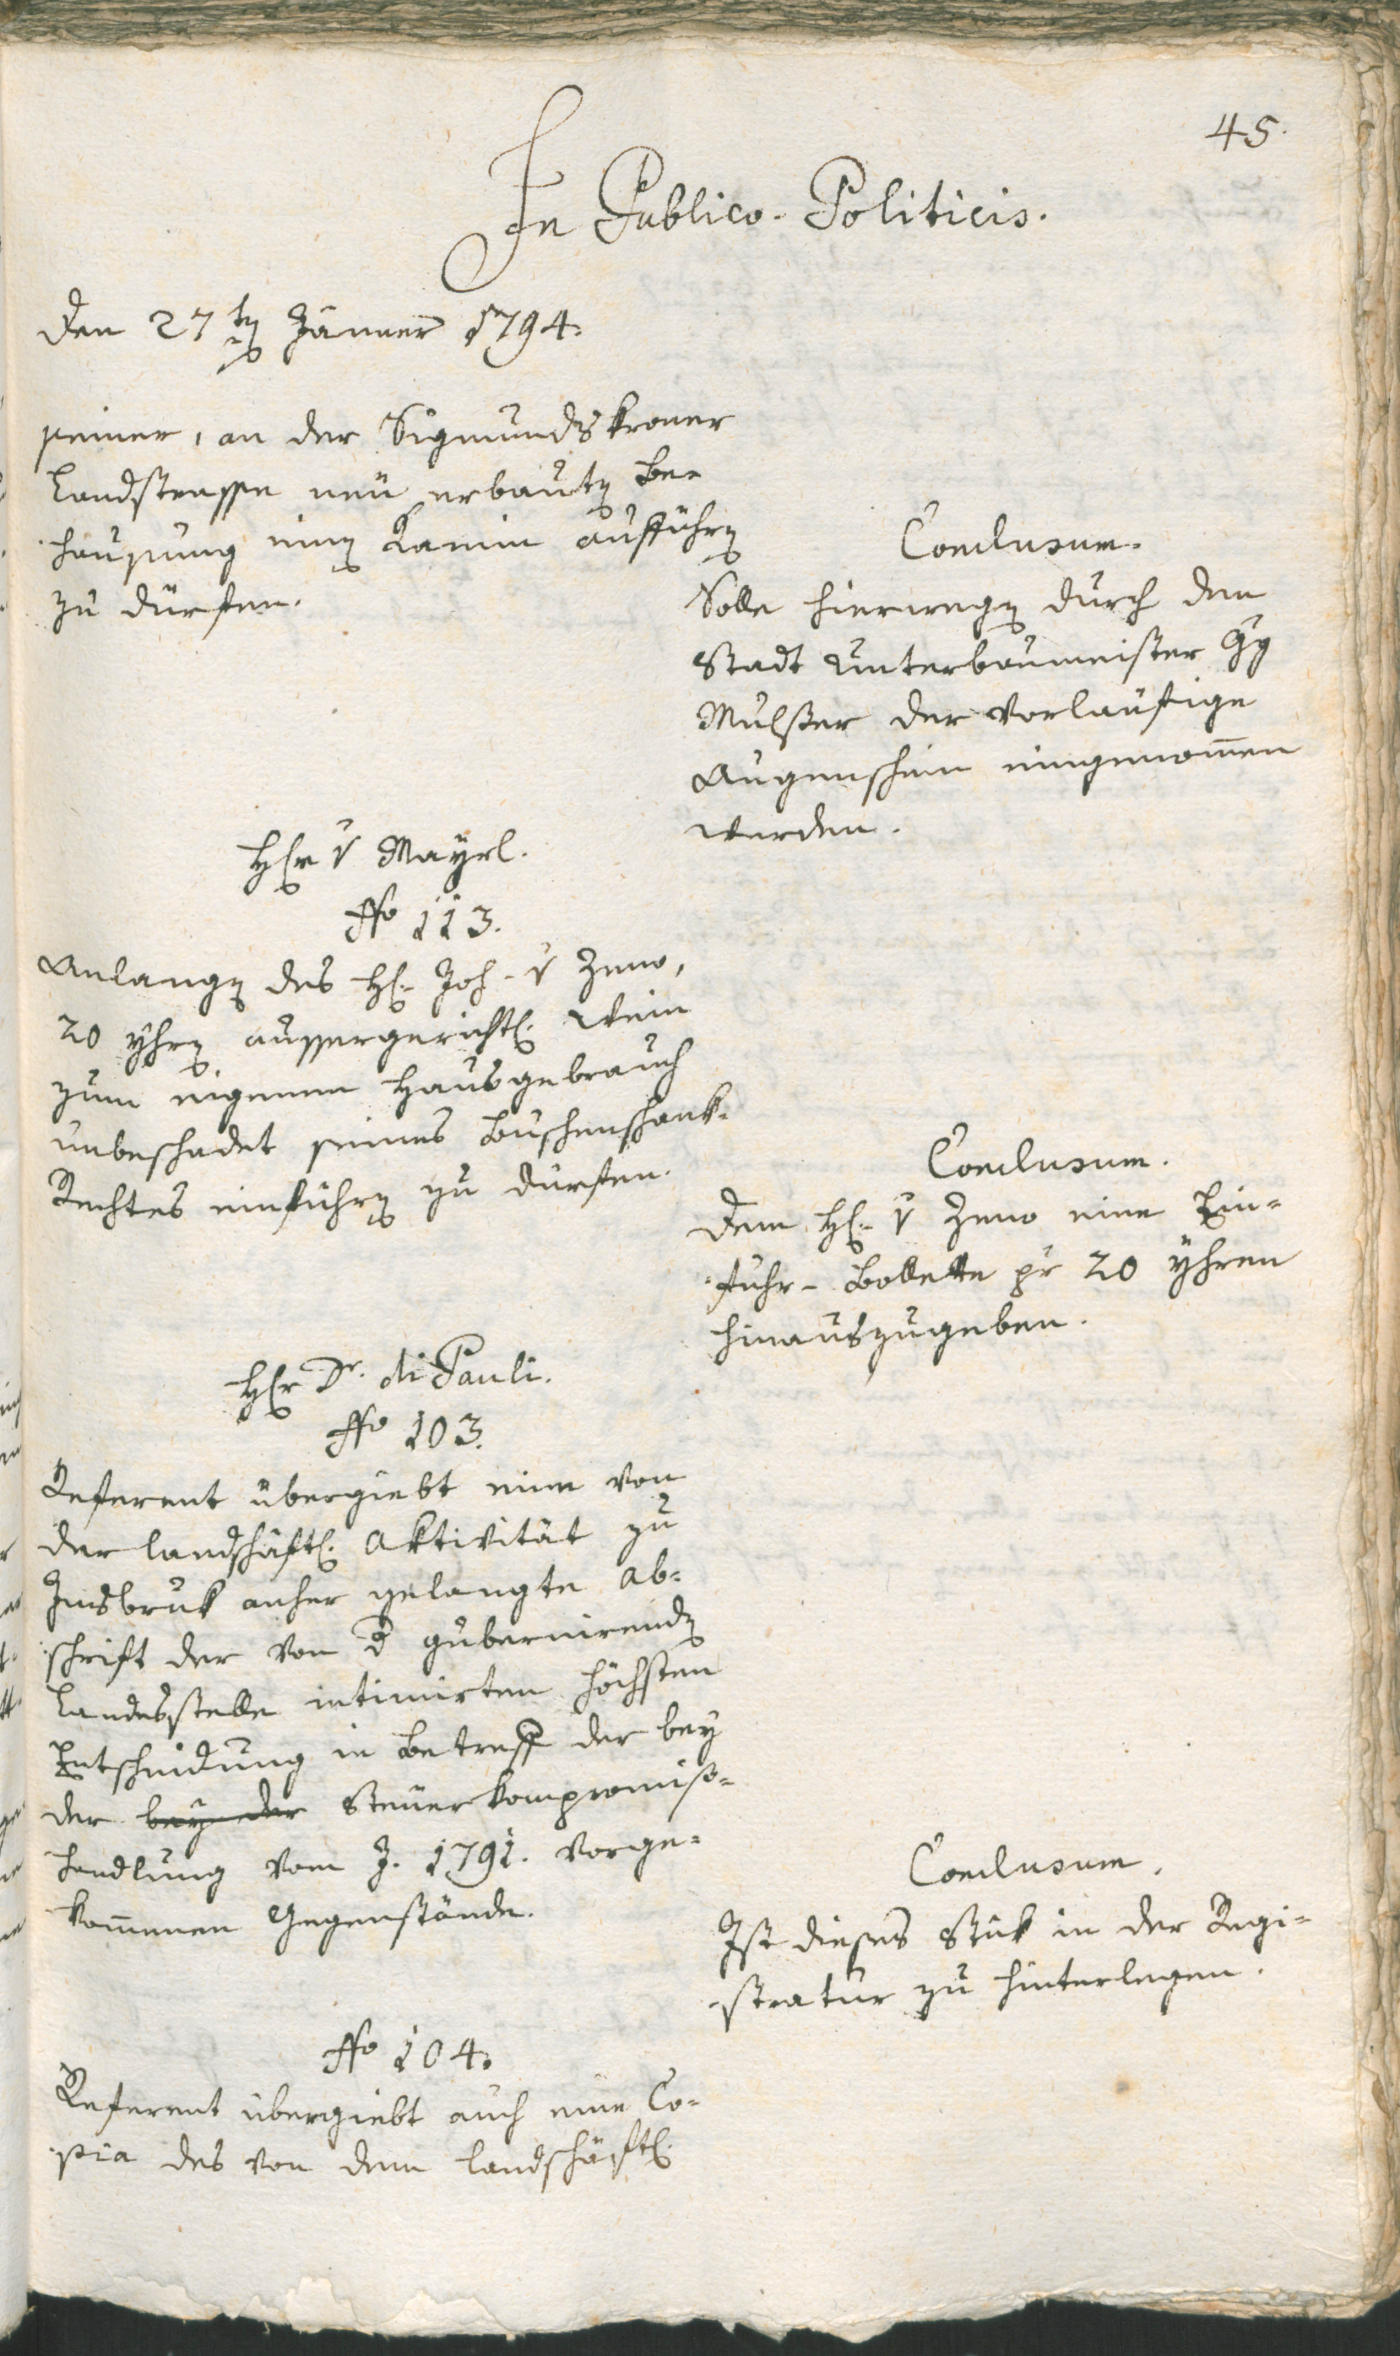 45.
In Publico-Politicis.
Den 27ten Jänner 1794.
seiner, an der Sigmundskroner
Landstrasse neu erbauten Be-
hausung einen Kamin aufführen
zu dürfen.
Conclusum.
Solle hierwegen durch den
Stadt Unterbaumeister Gg
Mulser der vorläufige
Augenschein eingenom̄en
werden.
Hr v Mayrl.
No 113.
Anlangen des H. Joh. v Zeno,
20 yhren aussergerichtl. Wein
zum eigenen Hausgebrauch
unbeschadet seines Buschenschank-
Rechtes einführen zu dürfen.
Conclusum.
Dem H. v Zeno eine Ein-
fuhr-Bollette pr 20 yhren
hinauszugeben.
Hr Dr. di Pauli.
No 103.
Referent übergiebt eine von
der landschäftl. Aktivität zu
Innsbruk anher gelangte Ab-
schrift der von d gubernirenden
Landesstelle intimirten höchsten
Entscheidung in Betreff der bey
der bey der Steuerkompromiss-
handlung vom J. 1791. vorge-
kom̄enen Gegenstände.
Conclusum.
Ist dieses Stük in der Regi-
stratur zu hinterlegen.
No 104.
Referent übergiebt auch eine Co-
pia des von dem landschäftl.